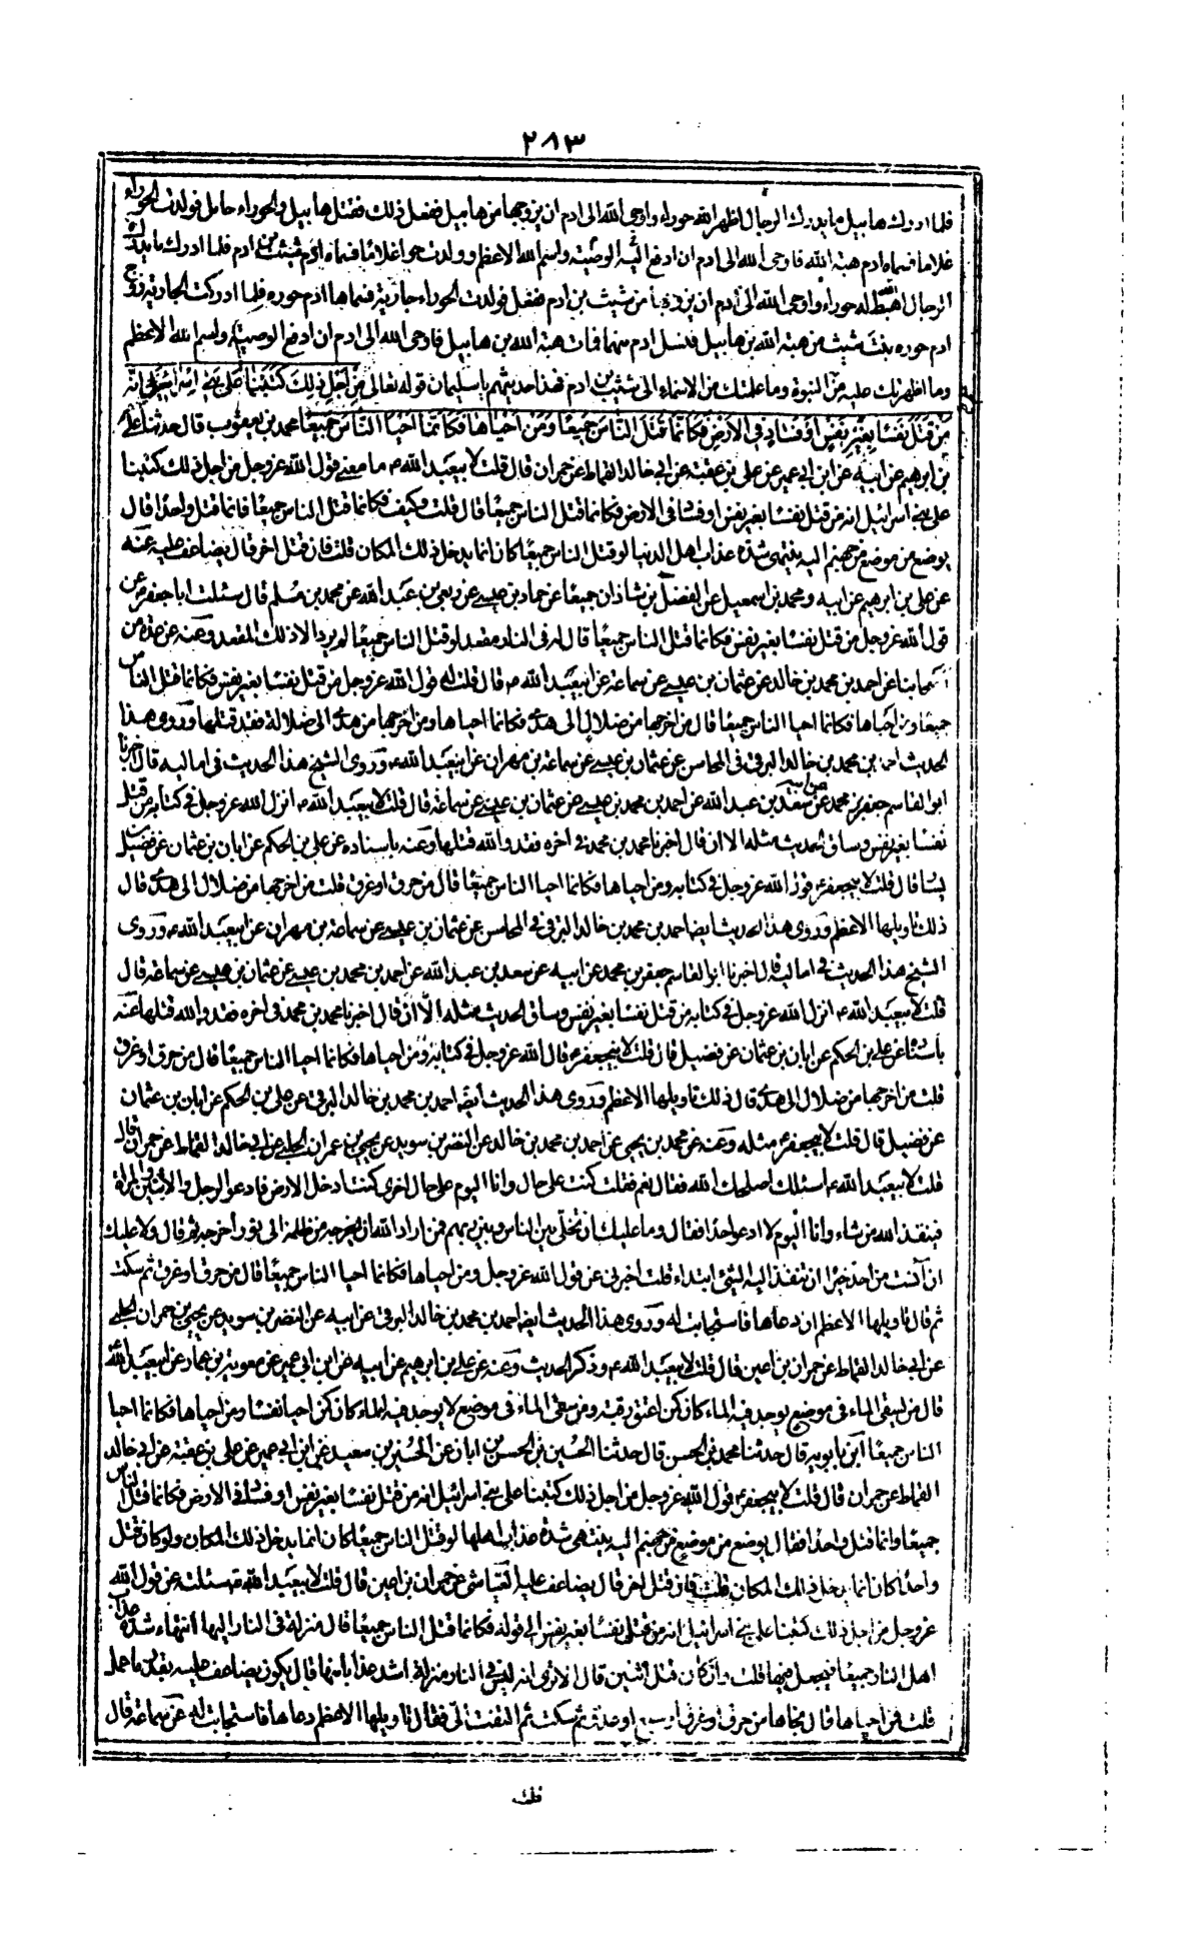 ٢٨٣
فلما ادرك هابيل ما يدرك الرجال اظهر الله حوراء واوحى الله الى ادم ان يزوجها من هابيل ففعل ذلك فقتل هابيل والحوراء حامل فولدت الحوراء
غلاما فسماه ادم هبة الله فاوحى الله الى ادم ان ادفع اليه الوصية واسم الله الاعظم وولدت حوا غلاما فسماه ادم شيث بن ادم فلما ادرك ما يدرك
الرجال اهبط له حوراء واوحى الله الى ادم ان يزوجها من شيث بن ادم ففعل فولدت الحوراء جارية فسماها ادم حوره فلما ادركت الجارية زوج
ادم حوره بنت شيث من هبة الله بن هابيل فنسل ادم منهما فمات هبة الله بن هابيل فاوحى الله الى ادم ان ادفع الوصية واسم الله الاعظم
وما اظهرتك عليه من النبوة وما علمتك من الاسماء الى شيث بن ادم فهذا حديثهم يا سليمان قوله تعالى مِنْ اَجْلِ ذٰلِكَ كَتَبْنَا عَلٰى بَنِي اِسْرَائِيلَ اَنَّهُ
مَنْ قَتَلَ نَفْسًا بِغَيْرِ نَفْسٍ اَوْ فَسَادٍ فِي الْاَرْضِ فَكَاَنَّمَا قَتَلَ النَّاسَ جَمِيعًا وَمَنْ اَحْيَاهَا فَكَاَنَّمَا اَحْيَا النَّاسَ جَمِيعًا محمد بن يعقوب قال حدثنا علي
بن ابرهيم عن ابيه عن ابن ابي عمير عن علي بن عقبة عن ابي خالد القماط عن حمران قال قلت لابيعبد الله ع ما معنى قول الله عز وجل من اجل ذلك كتبنا
على بني اسرائيل انه من قتل نفسا بغير نفس او فساد في الارض فكانما قتل الناس جميعا قال قلت وكيف فكانما قتل الناس جميعا فانما قتل واحدا قال
يوضع من موضع من جهنم اليه ينتهى شدة عذاب اهل الدنيا لو قتل الناس جميعا كان انما يدخل ذلك المكان قلت فان قتل اخر قال يضاعف عليه عنه
عن علي بن ابرهيم عن ابيه ومحمد بن اسمعيل عن الفضل بن شاذان جميعا عن حماد بن عيسى عن ربعي بن عبد الله عن محمد بن مسلم قال سئلت ابا جعفر ع عن
قول الله عز وجل من قتل نفسا بغير نفس فكانما قتل الناس جميعا قال له في النار مقعد لو قتل الناس جميعا لم يرد الا ذلك المقعد وعنه عن عدة من
اصحابنا عن احمد بن محمد بن خالد عن عثمان بن عيسى عن سماعة عن ابيعبد الله ع قال قلت له قول الله عز وجل من قتل نفسا بغير نفس فكانما قتل الناس
جميعا ومن احياها فكانما احيا الناس جميعا قال من اخرجها من ضلال الى هدى فكانما احياها ومن اخرجها من هدى الى ضلالة فقد قتلها وروى هذا
الحديث احمد بن محمد بن خالد البرقي في المحاسن عن عثمان بن عيسى عن سماعة بن مهران عن ابيعبد الله ع وروى الشيخ هذا الحديث في اماليه قال اخبرنا
ابو القاسم جعفر بن محمد عن ابيه عن سعد بن عبد الله عن احمد بن محمد بن عيسى عن عثمان بن عيسى عن سماعة قال قلت لابيعبد الله ع انزل الله عز وجل في كتابه من قتل
نفسا بغير نفس وساق الحديث مثله الا ان قال اخبرنا محمد بن محمد في اخره فقد والله قتلها وعنه باسناده عن علي بن الحكم عن ابان بن عثمان عن فضيل بن
يسار قال قلت لابيجعفر ع قول الله عز وجل في كتابه ومن احياها فكانما احيا الناس جميعا قال من حرق او غرق قلت من اخرجها من ضلال الى هدى قال
ذلك تاويلها الاعظم وروى هذا الحديث ايضا احمد بن محمد بن خالد البرقي في المحاسن عن عثمان بن عيسى عن سماعة بن مهران عن ابيعبد الله ع وروى
الشيخ هذا الحديث في اماليه قال اخبرنا ابو القاسم جعفر بن محمد عن ابيه عن سعد بن عبد الله عن احمد بن محمد بن عيسى عن عثمان بن عيسى عن سماعة قال
قلت لابيعبد الله ع انزل الله عز وجل في كتابه من قتل نفسا بغير نفس وساق الحديث مثله الا ان قال اخبرنا محمد بن محمد في اخره فقد والله قتلها عنه
باسناده عن علي بن الحكم عن ابان بن عثمان عن فضيل قال قلت لابيجعفر ع قال الله عز وجل في كتابه ومن احياها فكانما احيا الناس جميعا قال من حرق او غرق
قلت من اخرجها من ضلال الى هدى قال ذلك تاويلها الاعظم وروى هذا الحديث ايضا احمد بن محمد بن خالد البرقي عن علي بن الحكم عن ابان بن عثمان
عن فضيل قال قلت لابيجعفر ع مثله وعنه عن محمد بن يحيى عن احمد بن محمد بن خالد عن النضر بن سويد عن يحيى بن عمران الحلبي عن ابي خالد القماط عن حمران قال
قلت لابيعبد الله ع اسئلك اصلحك الله فقال نعم فقلت كنت على حال وانا اليوم على حال اخرى كنت ادخل الارض فادعو الرجل والاثنين والمراة
فينقذ الله من شاء وانا اليوم لا ادعو احدا فقال وما عليك ان تخلي بين الناس وبين ربهم فمن اراد الله ان يخرجه من ظلمة الى نور اخرجه ثم قال ولا عليك
ان آنست من احد خيرا ان تنفذ اليه الشيئ ابتداء قلت اخبرني عن قول الله عز وجل ومن احياها فكانما احيا الناس جميعا قال من حرق او غرق ثم سكت
ثم قال تاويلها الاعظم ان دعاها فاستجابت له وروى هذا الحديث ايضا احمد بن محمد بن خالد البرقي عن ابيه عن النضر بن سويد عن يحيى بن عمران الحلبي
عن ابي خالد القماط عن حمران بن اعين قال قلت لابيعبد الله ع وذكر الحديث وعنه عن علي بن ابرهيم عن ابيه عن ابن ابي عمير عن معوية بن عمار عن ابيعبد الله ع
قال من سقى الماء في موضع يوجد فيه الماء كان كمن اعتق رقبة ومن سقى الماء في موضع لا يوجد فيه الماء كان كمن احيا نفسا ومن احياها فكانما احيا
الناس جميعا ابن بابويه قال حدثنا محمد بن الحسن قال حدثنا الحسين بن الحسن بن ابان عن الحسين بن سعيد عن ابن ابي عمير عن علي بن عقبة عن ابي خالد
القماط عن حمران قال قلت لابيجعفر ع قول الله عز وجل من اجل ذلك كتبنا على بني اسرائيل انه من قتل نفسا بغير نفس او فساد في الارض فكانما قتل الناس
جميعا وانما قتل واحدا فقال يوضع من موضع من جهنم اليه ينتهى شدة عذاب اهلها لو قتل الناس جميعا كان انما يدخل ذلك المكان ولو كان قتل
واحدا كان انما يدخل ذلك المكان قلت فان قتل اخر قال يضاعف عليه العياشي عن حمران بن اعين قال قلت لابيعبد الله ع سئلته عن قول الله
عز وجل من اجل ذلك كتبنا على بني اسرائيل انه من قتل نفسا بغير نفس الى قوله فكانما قتل الناس جميعا قال منزلة في النار اليها انتهاء شدة عذاب
اهل النار جميعا فيجعل فيها قلت وان كان قتل اثنين قال الا ترى انه ليس في النار منزلة اشد عذابا منها قال يكون يضاعف عليه بقدر ما عمل
قلت فمن احياها قال نجاها من حرق او غرق او سبع او عدو ثم سكت ثم التفت الي فقال تاويلها الاعظم دعاها فاستجابت له عن سماعة قال
قلت